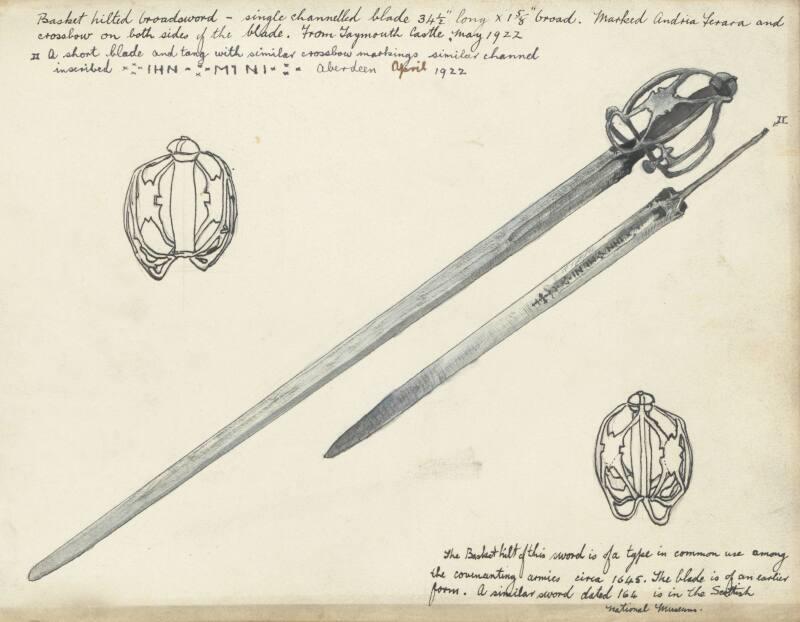 Basket hilted broadsword – single channelled blade 34½" long x 1⅝" broad. Marked Andria Ferara and
crossbow on both sides of the blade. From Taymouth Castle, May 1922
II A short blade and tang with similar crossbow markings similar channel
inscribed ·×·:·IHN·:·×·:·MINI·:·×·:· Aberdeen April 1922
II
The Basket hilt of this sword is of a type in common use among
the covenanting armies circa 1645. The blade is of an earlier
form. A similar sword dated 164 is in the Scottish
National Museum.